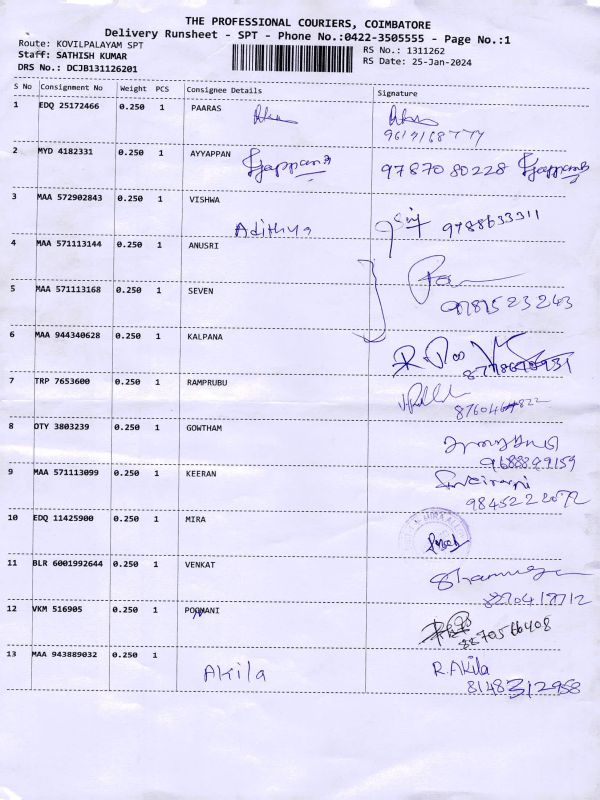 THE PROFESSIONAL COURIERS, COIMBATORE
Delivery Runsheet - SPT - Phone No.:0422-3505555 - Page No.:1
Route: KOVILPALAYAM SPT
Staff: SATHISH KUMAR
DRS No.: DCJB131126201
RS No.: 1311262
RS Date: 25-Jan-2024
S No Consignment No Weight PCS Consignee Details Signature
1 EDQ 25172466 0.250 1 PAARAS
2 MYD 4182331 0.250 1 AYYAPPAN 9787080228
3 MAA 572902843 0.250 1 VISHWA
Adithya 9788633311
4 MAA 571113144 0.250 1 ANUSRI
5 MAA 571113168 0.250 1 SEVEN
9787523243
6 MAA 944340628 0.250 1 KALPANA
7 TRP 7653600 0.250 1 RAMPRUBU
8 OTY 3803239 0.250 1 GOWTHAM
9688899159
9 MAA 571113099 0.250 1 KEERAN
9845222072
10 EDQ 11425900 0.250 1 MIRA
11 BLR 6001992644 0.250 1 VENKAT
12 VKM 516905 0.250 1
8870566408
13 MAA 943889032 0.250 1
Akila R.Akila
8148312958